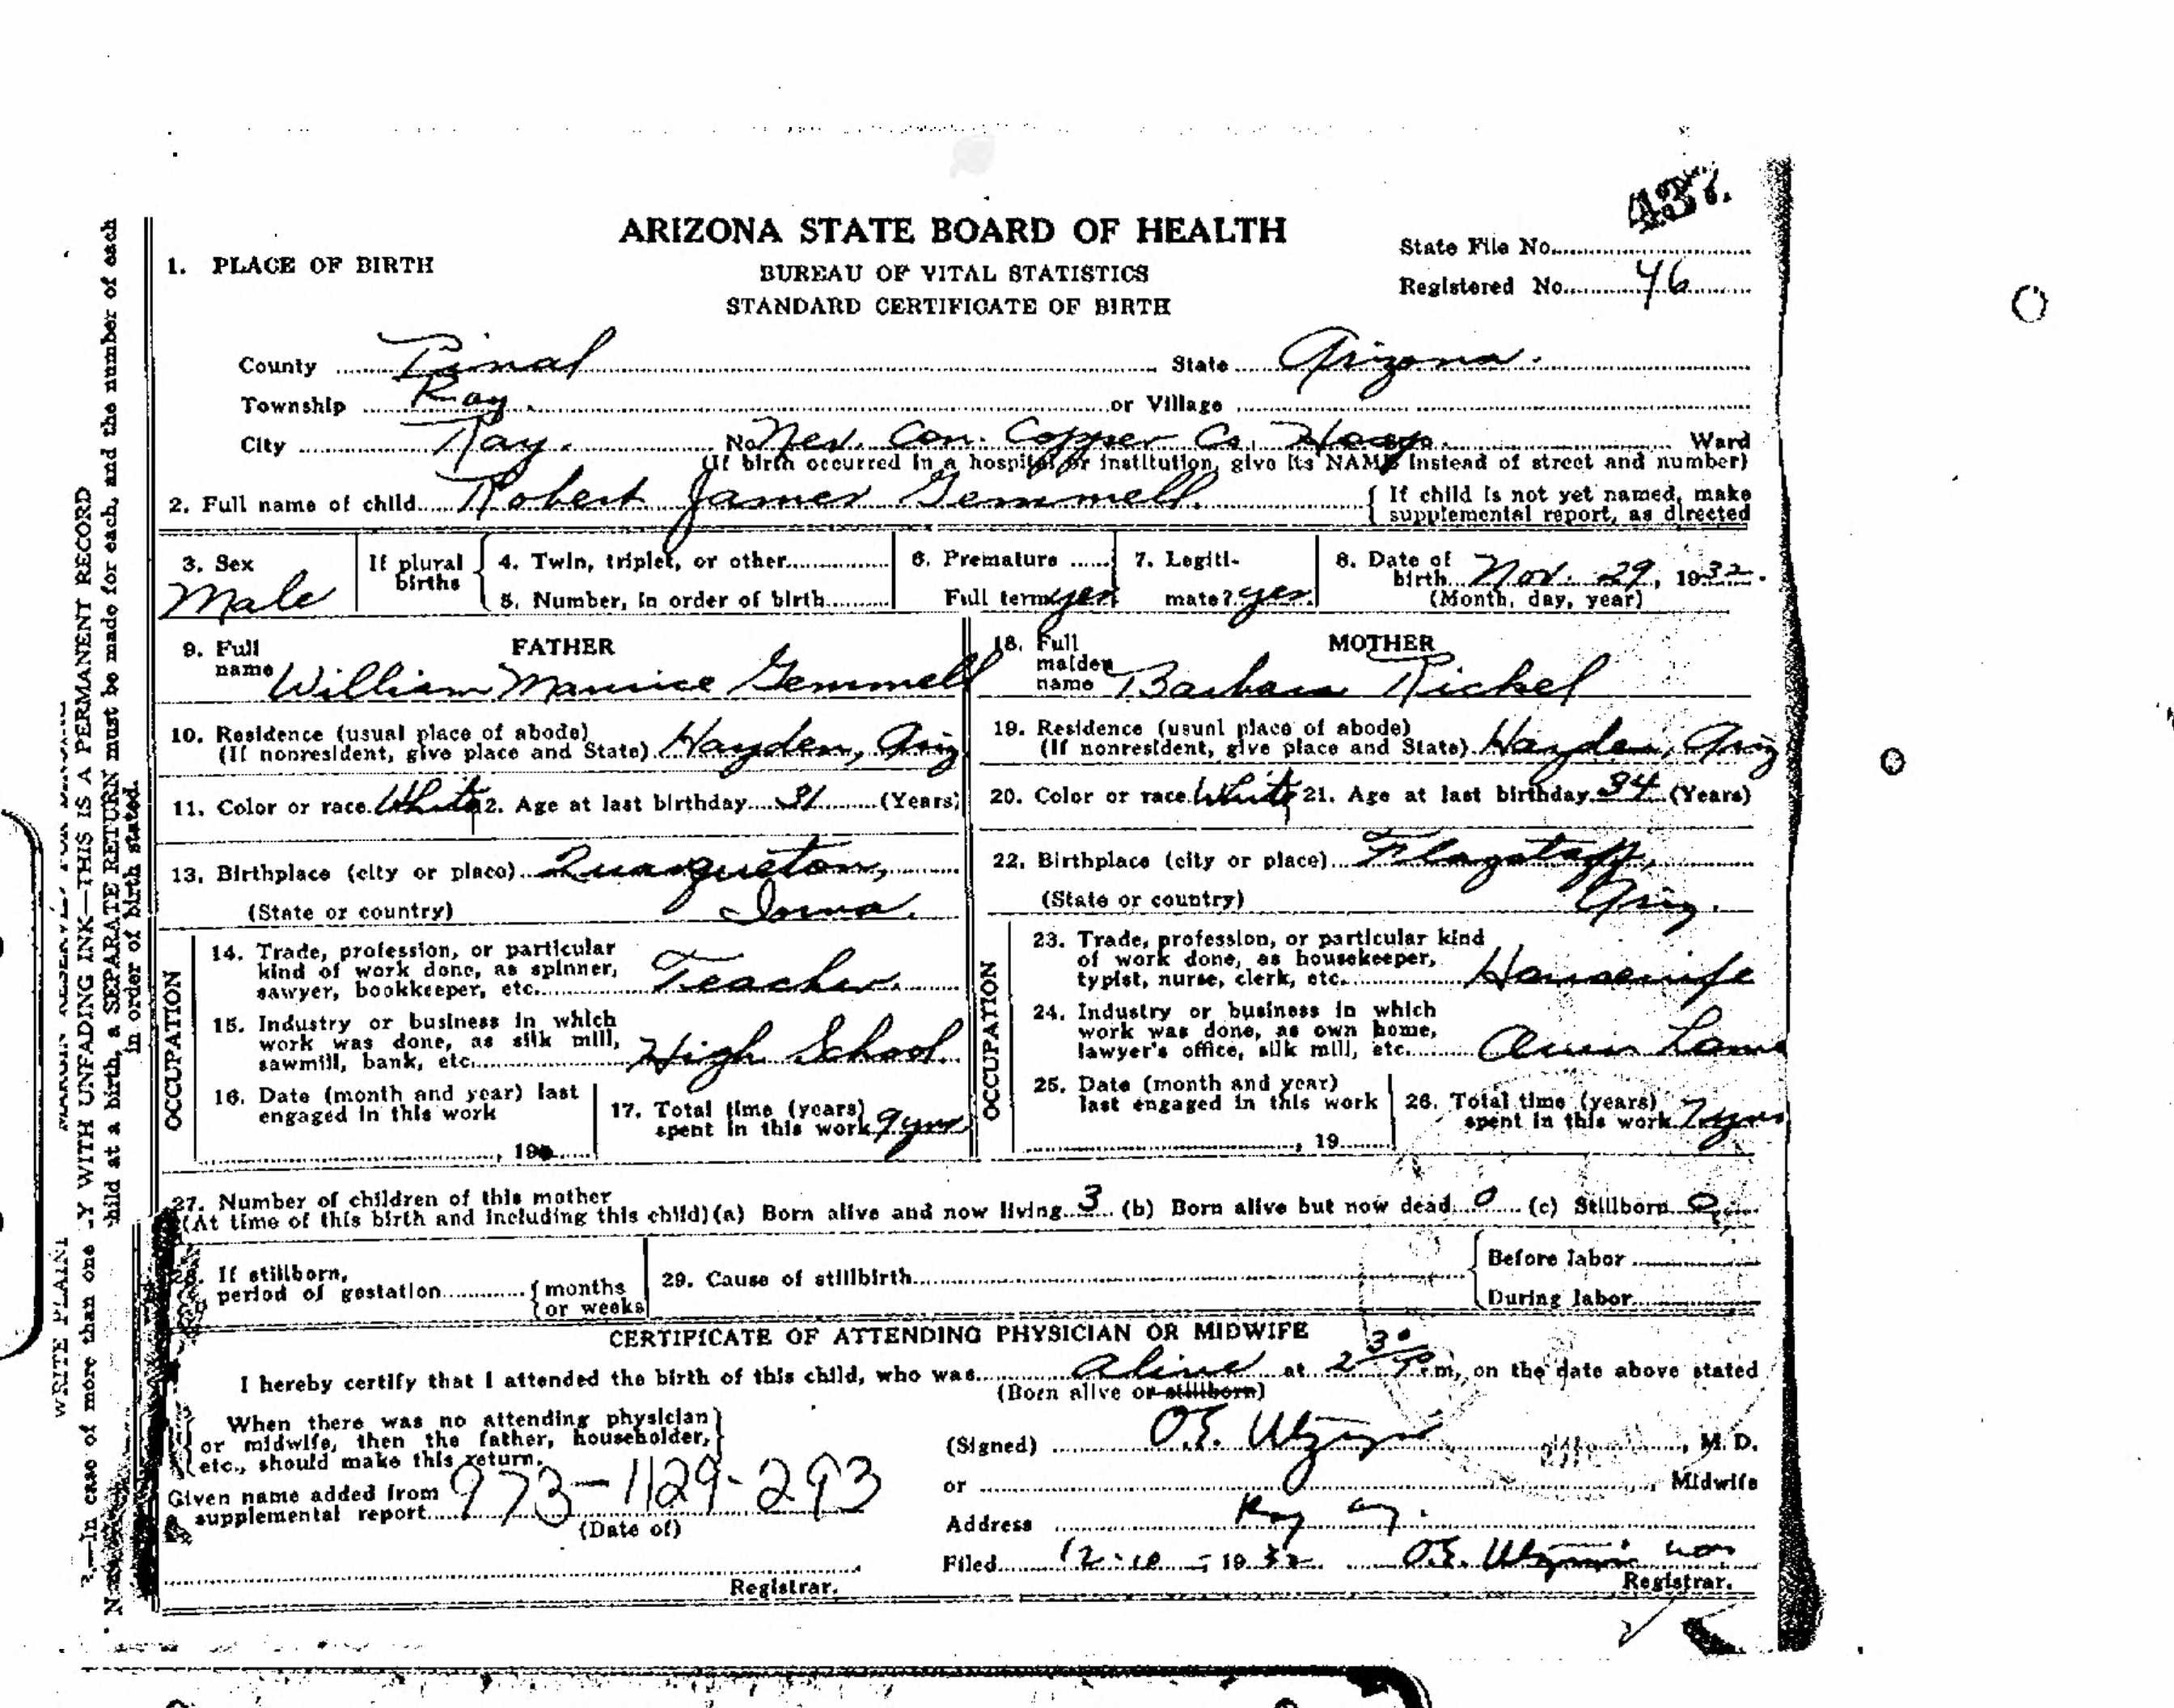 437.
ARIZONA STATE BOARD OF HEALTH
State File No.
1. PLACE OF BIRTH
BUREAU OF VITAL STATISTICS
Registered No. 46
STANDARD CERTIFICATE OF BIRTH
County Pinal State Arizona.
Township Ray. or Village
City Ray. No. Nev. Con. Copper Co. Hosp. Ward
(If birth occurred in a hospital or institution, give its NAME instead of street and number)
2. Full name of child Robert James Gemmell. { If child is not yet named, make
supplemental report, as directed
3. Sex Male
If plural births
4. Twin, triplet, or other
5. Number, in order of birth
6. Premature
Full term yes
7. Legiti-
mate? yes.
8. Date of
birth Nov. 29, 1932.
(Month, day, year)
FATHER
9. Full
name William Maurice Gemmell
10. Residence (usual place of abode)
(If nonresident, give place and State) Hayden, Ariz
11. Color or race White 12. Age at last birthday 31 (Years)
13. Birthplace (city or place) Quasqueton,
(State or country) Iowa.
OCCUPATION
14. Trade, profession, or particular
kind of work done, as spinner,
sawyer, bookkeeper, etc. Teacher.
15. Industry or business in which
work was done, as silk mill,
sawmill, bank, etc. High School.
16. Date (month and year) last
engaged in this work
, 19
17. Total time (years)
spent in this work 9 yrs
MOTHER
18. Full
maiden
name Barbara Rickel
19. Residence (usual place of abode)
(If nonresident, give place and State) Hayden, Ariz
20. Color or race White 21. Age at last birthday 34 (Years)
22. Birthplace (city or place) Flagstaff,
(State or country) Ariz.
OCCUPATION
23. Trade, profession, or particular kind
of work done, as housekeeper,
typist, nurse, clerk, etc. Housewife
24. Industry or business in which
work was done, as own home,
lawyer's office, silk mill, etc. Own Home
25. Date (month and year)
last engaged in this work
, 19
26. Total time (years)
spent in this work 7 yrs
27. Number of children of this mother
(At time of this birth and including this child) (a) Born alive and now living 3 (b) Born alive but now dead 0 (c) Stillborn 0
28. If stillborn,
period of gestation { months
or weeks
29. Cause of stillbirth
{ Before labor
During labor
CERTIFICATE OF ATTENDING PHYSICIAN OR MIDWIFE
I hereby certify that I attended the birth of this child, who was alive at 2 30 P.m, on the date above stated
(Born alive or stillborn)
{ When there was no attending physician
or midwife, then the father, householder,
etc., should make this return. }
(Signed) O.E. , M. D.
or , Midwife
Given name added from
a supplemental report 973-1129-293
(Date of)
Address Ray
Filed 12-10-, 1932 O.E.
Registrar.
Registrar.
WRITE PLAINLY WITH UNFADING INK—THIS IS A PERMANENT RECORD
B.—In case of more than one child at a birth, a SEPARATE RETURN must be made for each, and the number of each
in order of birth stated.